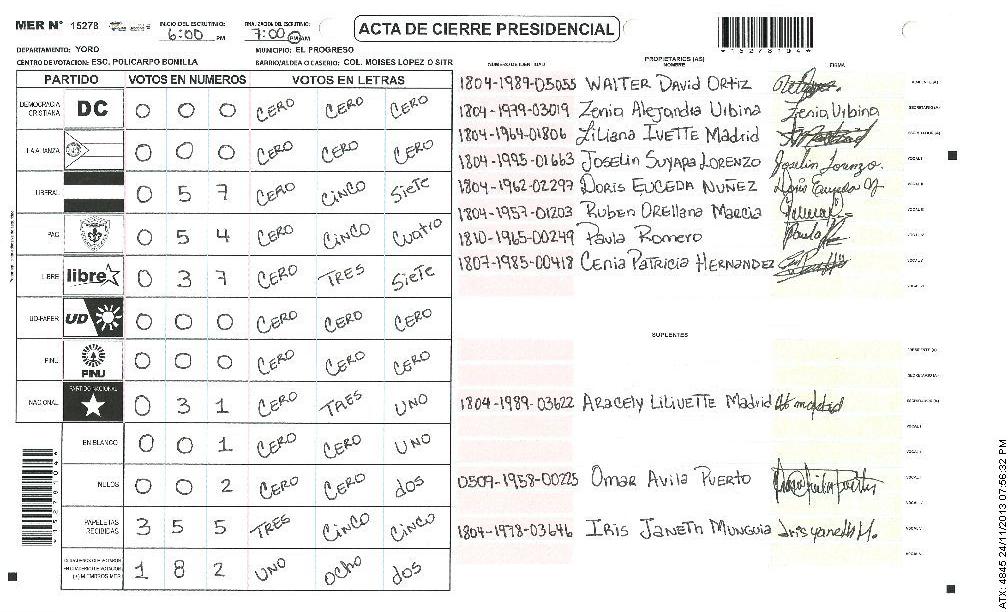 MER N° 15278
INICIO DEL ESCRUTINIO: 6:00 PM
FINALIZACIÓN DEL ESCRUTINIO: 7:00 PM AM
ACTA DE CIERRE PRESIDENCIAL
*15278104*
DEPARTAMENTO: YORO
MUNICIPIO: EL PROGRESO
CENTRO DE VOTACION: ESC. POLICARPO BONILLA
BARRIO/ALDEA O CASERIO: COL. MOISES LOPEZ O SITR
PARTIDO VOTOS EN NUMEROS VOTOS EN LETRAS
DEMOCRACIA CRISTIANA DC 0 0 0 CERO CERO CERO
LA ALIANZA 0 0 0 CERO CERO CERO
LIBERAL 0 5 7 CERO CINCO SIETE
PAC 0 5 4 CERO CINCO CUATRO
LIBRE libre 0 3 7 CERO TRES SIETE
UD-FAPER UD 0 0 0 CERO CERO CERO
PINU PINU 0 0 0 CERO CERO CERO
NACIONAL PARTIDO NACIONAL 0 3 1 CERO TRES UNO
EN BLANCO 0 0 1 CERO CERO UNO
NULOS 0 0 2 CERO CERO dos
PAPELETAS RECIBIDAS 3 5 5 TRES CINCO CINCO
(+) MIEMBROS MER 1 8 2 UNO OCHO dos
PROPIETARIOS (AS)
NUMERO DE IDENTIDAD NOMBRE FIRMA
1804-1989-05055 WALTER David ORTIZ
1804-1979-03019 Zenia Alejandra Urbina Zenia Urbina
1804-1964-01806 Liliana IVETTE Madrid
1804-1995-01663 JOSELIN SUYAPA LORENZO Joselin Lorenzo.
1804-1962-02297 DORIS EUCEDA NUÑEZ
1804-1957-01203 Ruben ORELlana Marcia
1810-1965-00249 Paula Romero
1807-1985-00418 Cenia Patricia HERNANDEZ
SUPLENTES
1804-1989-03622 Aracely LiliVETTE Madrid
0509-1958-00225 Omar Avila PUERTO
1804-1978-03646 IRIS JANETH MUNGUIA Iris yaneth M.
ATX: 4845 24/11/2013 07:56:32 PM